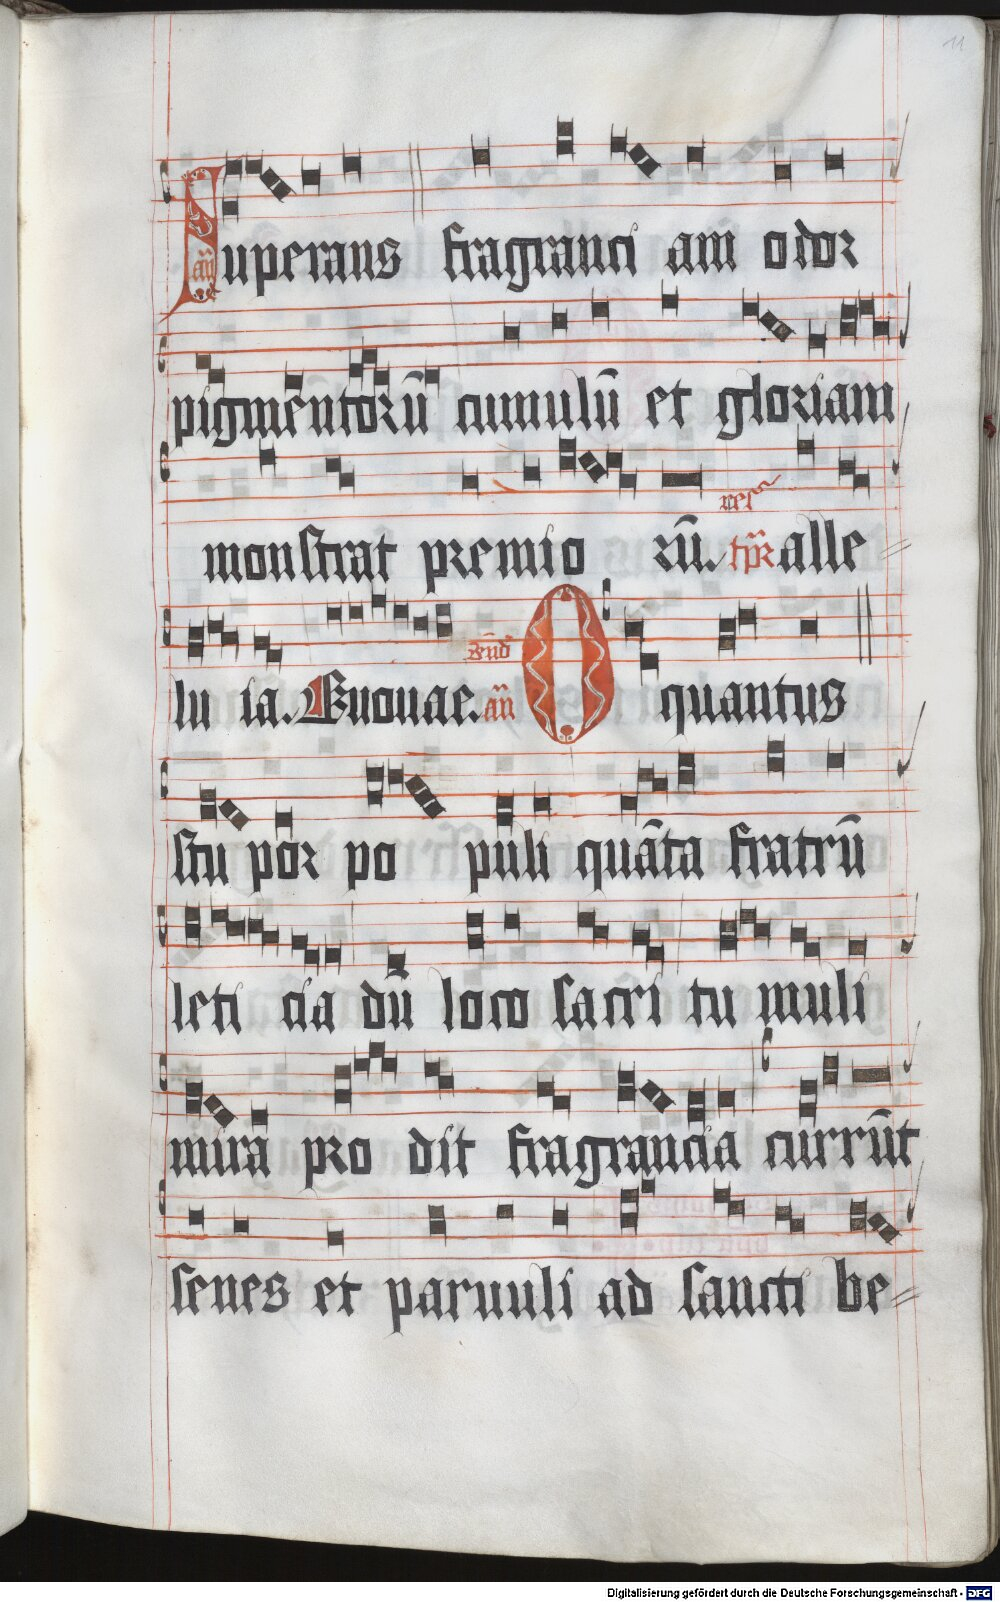 11
Superans fragranci am odor
an̄
pigmentorū cumulū et gloriam
monstrat premio rū. tp̄r alle
lu ia. Euouae. an̄ O quantus
stu por po puli quāta fratrū
leti cia dū loco sacri tu muli
mira pro dit fragrancia currūt
senes et paruuli ad sancti be
Digitalisierung gefördert durch die Deutsche Forschungsgemeinschaft - DFG